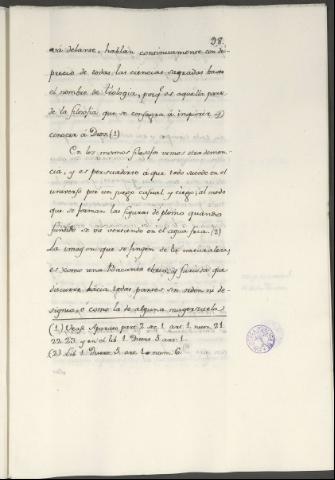 98.
erá delante, hablan continuamente con des-
precio de todas las ciencias sagradas baxo
el nombre de Teologia, porq.e es aquella parte
de la filosofia que se consagra á inquirir y
conocer á Dios.(1)
En los mismos filosofos vemos otra demen-
cia, y es persuadirse á que todo sucede en el
universo por un juego casual y ciego, al modo
que se forman las figuras de plomo quando
fundido se va vertiendo en el agua fria.(2)
La imagen que se fingen de la naturaleza,
es como una Bacante ebria, y furiosa que
discurre hácia todas partes sin orden ni de-
signio, ó como la de alguna mugerzuela
(1) Vease Aparato part. 2 ar. 1. num. 21.
22. 23. y en el lib. 1. Disert. 3 art. 1.
(2) Lib 1. Disert. 3. art. 1 num. 6.